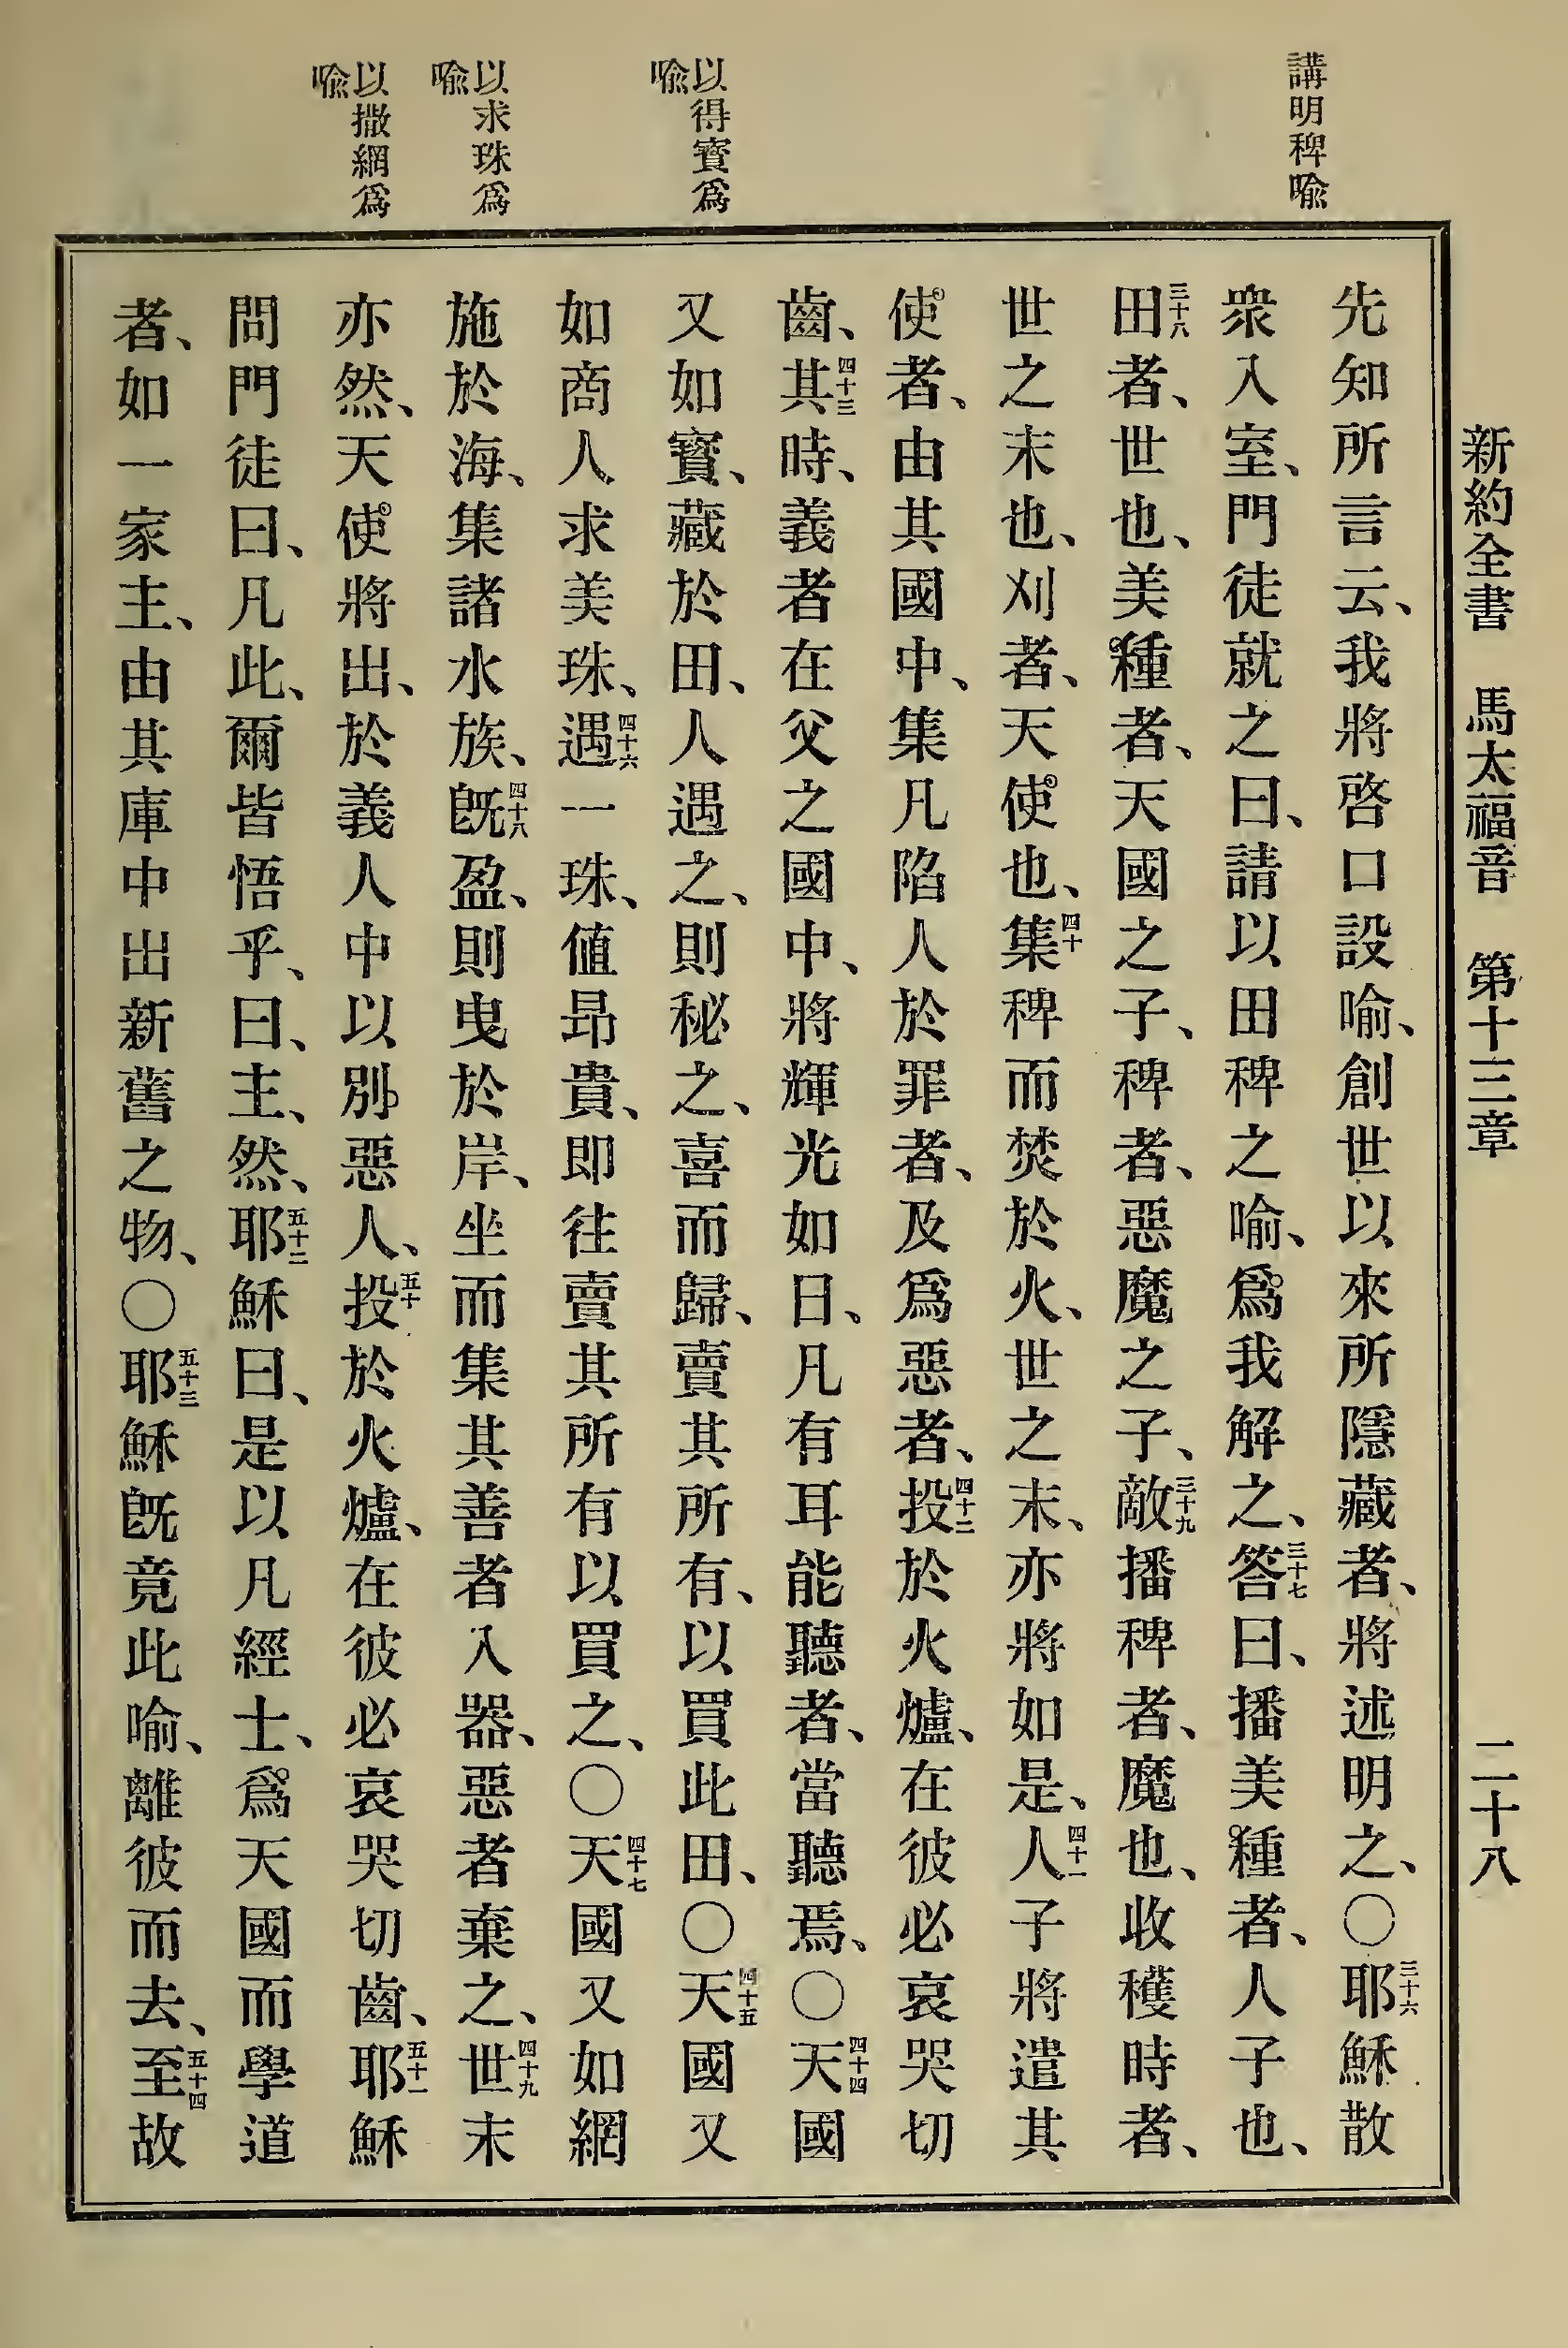 新約全書 馬太福音 第十三章 二十八
講明稗喩
以得寳爲
喩
以求珠爲
喩
以撒網爲
喩
先知所言云、我將啓口設喻、創世以來所隱藏者、將述明之、○三十六耶穌散
衆入室、門徒就之曰、請以田稗之喻、爲我解之、三十七答曰、播美種者、人子也、
三十八田者、世也、美種者、天國之子、稗者、惡魔之子、三十九敵播稗者、魔也、收穫時者、
世之末也、刈者、天使也、四十集稗而焚於火、世之末、亦將如是、四十一人子將遣其
使者、由其國中、集凡陷人於罪者、及爲惡者、四十二投於火爐、在彼必哀哭切
齒、四十三其時、義者在父之國中、將輝光如日、凡有耳能聽者、當聽焉、○四十四天國
又如寳、藏於田、人遇之、則秘之、喜而歸、賣其所有、以買此田、○四十五天國又
如商人求美珠、四十六遇一珠、値昂貴、即往賣其所有以買之、○四十七天國又如網
施於海、集諸水族、四十八旣盈、則曳於岸、坐而集其善者入器、惡者棄之、四十九世末
亦然、天使將出、於義人中以別惡人、五十投於火爐、在彼必哀哭切齒、五十一耶穌
問門徒曰、凡此、爾皆悟乎、曰、主、然、五十二耶穌曰、是以凡經士、爲天國而學道
者、如一家主、由其庫中出新舊之物、○五十三耶穌旣竟此喻、離彼而去、五十四至故